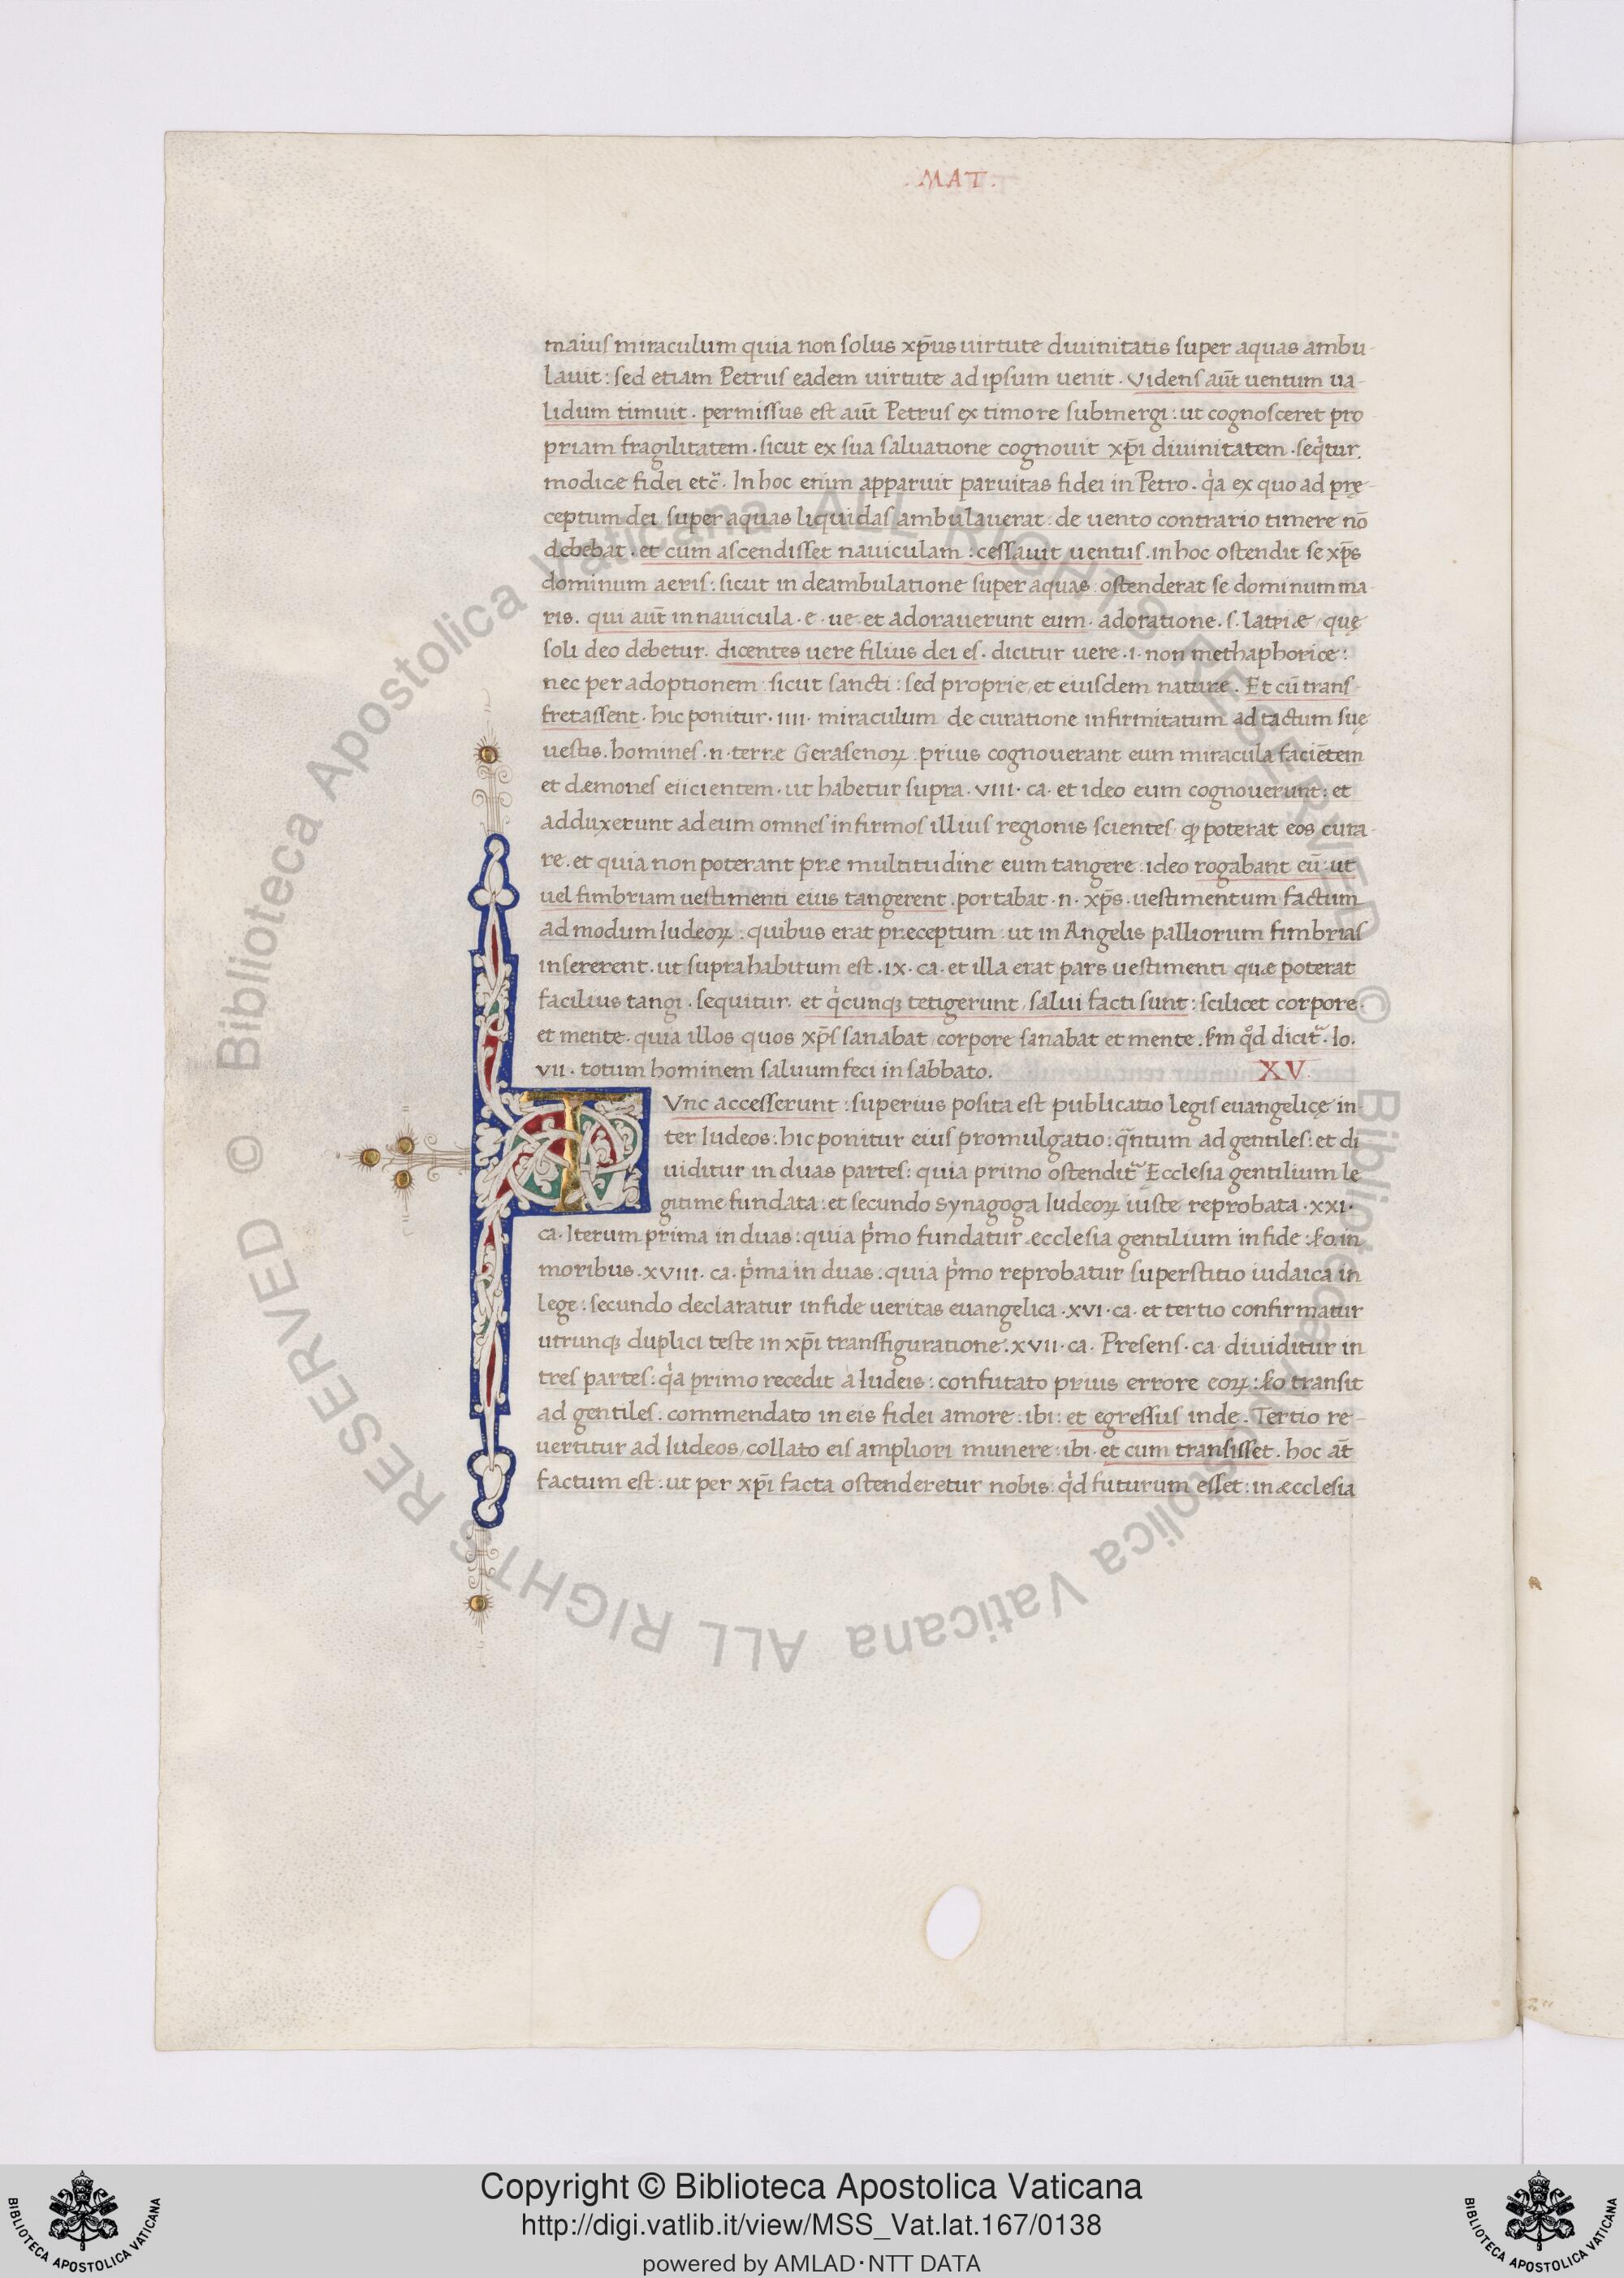 .MAT.
maius miraculum quia non solus xp̄us uirtute diuinitatis super aquas ambu-
lauit: sed etiam Petrus eadem uirtute ad ipsum uenit. Videns aūt uentum ua-
lidum timuit. permissus est aūt Petrus ex timore submergi: ut cognosceret pro
priam fragilitatem. sicut ex sua saluatione cognouit xp̄i diuinitatem. seqͥtur.
modice fidei etc̄. In hoc enim apparuit paruitas fidei in Petro. qͥa ex quo ad prę-
ceptum dei super aquas liquidas ambulauerat: de uento contrario timere nō
debebat. et cum ascendisset nauiculam: cessauit uentus. in hoc ostendit se xp̄s
dominum aeris: sicut in deambulatione super aquas ostenderat se dominum ma-
ris. qui aūt in nauicula. e. ue. et adorauerunt eum. adoratione. s. latriæ, quę
soli deo debetur. dicentes uere filius dei es. dicitur uere .i. non methaphorice:
nec per adoptionem: sicut sancti: sed proprie, et eiusdem nature. Et cū trans-
fretassent. hic ponitur. IIII. miraculum de curatione infirmitatum ad tactum suę
uestis. homines .n. terræ Gerasenoꝝ: prius cognouerant eum miracula faciētem
et dæmones eiicientem. ut habetur supra. VIII. ca. et ideo eum cognouerunt: et
adduxerunt ad eum omnes infirmos illius regionis scientes, ꝙ poterat eos cura-
re. et quia non poterant præ multitudine eum tangere: ideo rogabant eū: ut
uel fimbriam uestimenti eius tangerent. portabat .n. xp̄s. uestimentum factum
ad modum Iudeoꝝ: quibus erat præceptum: ut in Angelis palliorum fimbrias
insererent. ut supra habitum est. IX. ca. et illa erat pars uestimenti quæ poterat
facilius tangi. sequitur. et qͥcunqꝫ tetigerunt, salui facti sunt: scilicet corpore.
et mente. quia illos quos xp̄s sanabat, corpore sanabat et mente. s̄m qͦd dicit᷑. Io.
VII. totum hominem saluum feci in sabbato.
XV.
TVnc accesserunt: superius posita est publicatio legis euangelicę in-
ter Iudeos: hic ponitur eius promulgatio: qn̄tum ad gentiles: et di
uiditur in duas partes: quia primo ostendit᷑ Ecclesia gentilium le
gitime fundata: et secundo synagoga Iudeoꝝ iuste reprobata. XXI.
ca. Iterum prima in duas: quia pͥmo fundatur ecclesia gentilium in fide: s̄o in
moribus. XVIII. ca. pͥma in duas. quia pͥmo reprobatur superstitio iudaica in
lege: secundo declaratur in fide ueritas euangelica. XVI. ca. et tertio confirmatur
utrunqꝫ duplici teste in xp̄i transfiguratione. XVII. ca. Presens. ca. diuiditur in
tres partes: qͥa primo recedit a Iudeis: confutato prius errore eoꝝ: s̄o transit
ad gentiles. commendato in eis fidei amore. ibi: et egressus inde. Tertio re-
uertitur ad Iudeos, collato eis ampliori munere: ibi. et cum transisset. hoc at̄
factum est: ut per xp̄i facta ostenderetur nobis: qͥd futurum esset: in æcclesia
© Biblioteca Apostolica Vaticana ALL RIGHTS RESERVED
© Biblioteca Apostolica Vaticana ALL RIGHTS RESERVED
Copyright © Biblioteca Apostolica Vaticana
http://digi.vatlib.it/view/MSS_Vat.lat.167/0138
powered by AMLAD·NTT DATA
BIBLIOTECA APOSTOLICA VATICANA
BIBLIOTECA APOSTOLICA VATICANA